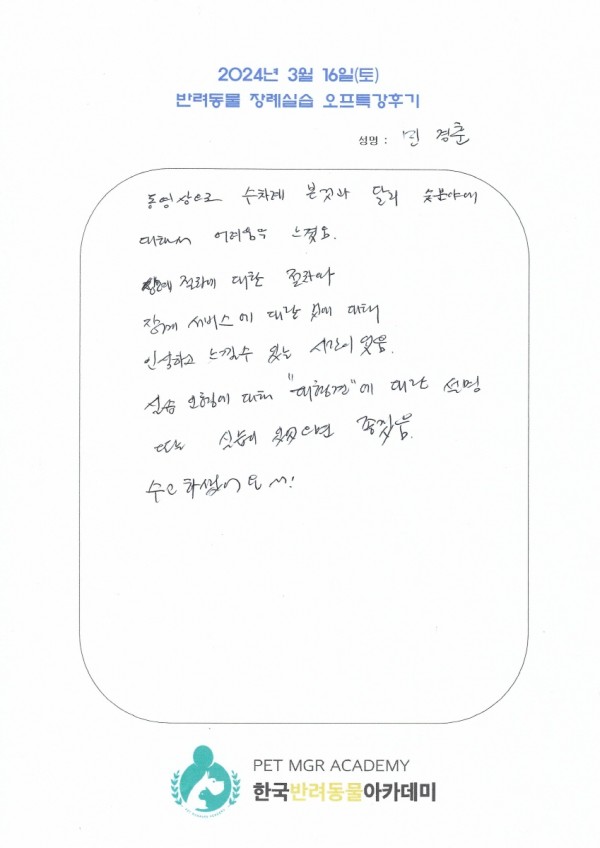 2024년 3월 16일(토)
반려동물 장례실습 오프특강후기
성명 : 민경춘
동영상으로 수차례 본것과 달리
대해서 어려움을 느꼈요.
절차에 대한
장례 서비스에 대한 대해
인식하고 느낄수 있는 시간이 있음.
실습 대해 "대형견"에 대한 설명
또는 실습이 있었으면 좋겠음.
수고하셨어요
PET MGR ACADEMY
한국반려동물아카데미